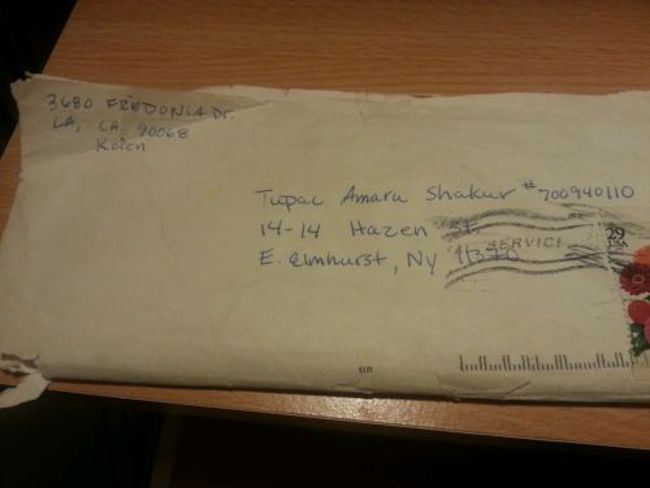 3680 FREDONIA Dr.
LA, CA, 90068
Tupac Amaru Shakur #700940110
14-14 Hazen St.
E. Elmhurst, Ny 11370
SERVICE
29
USA